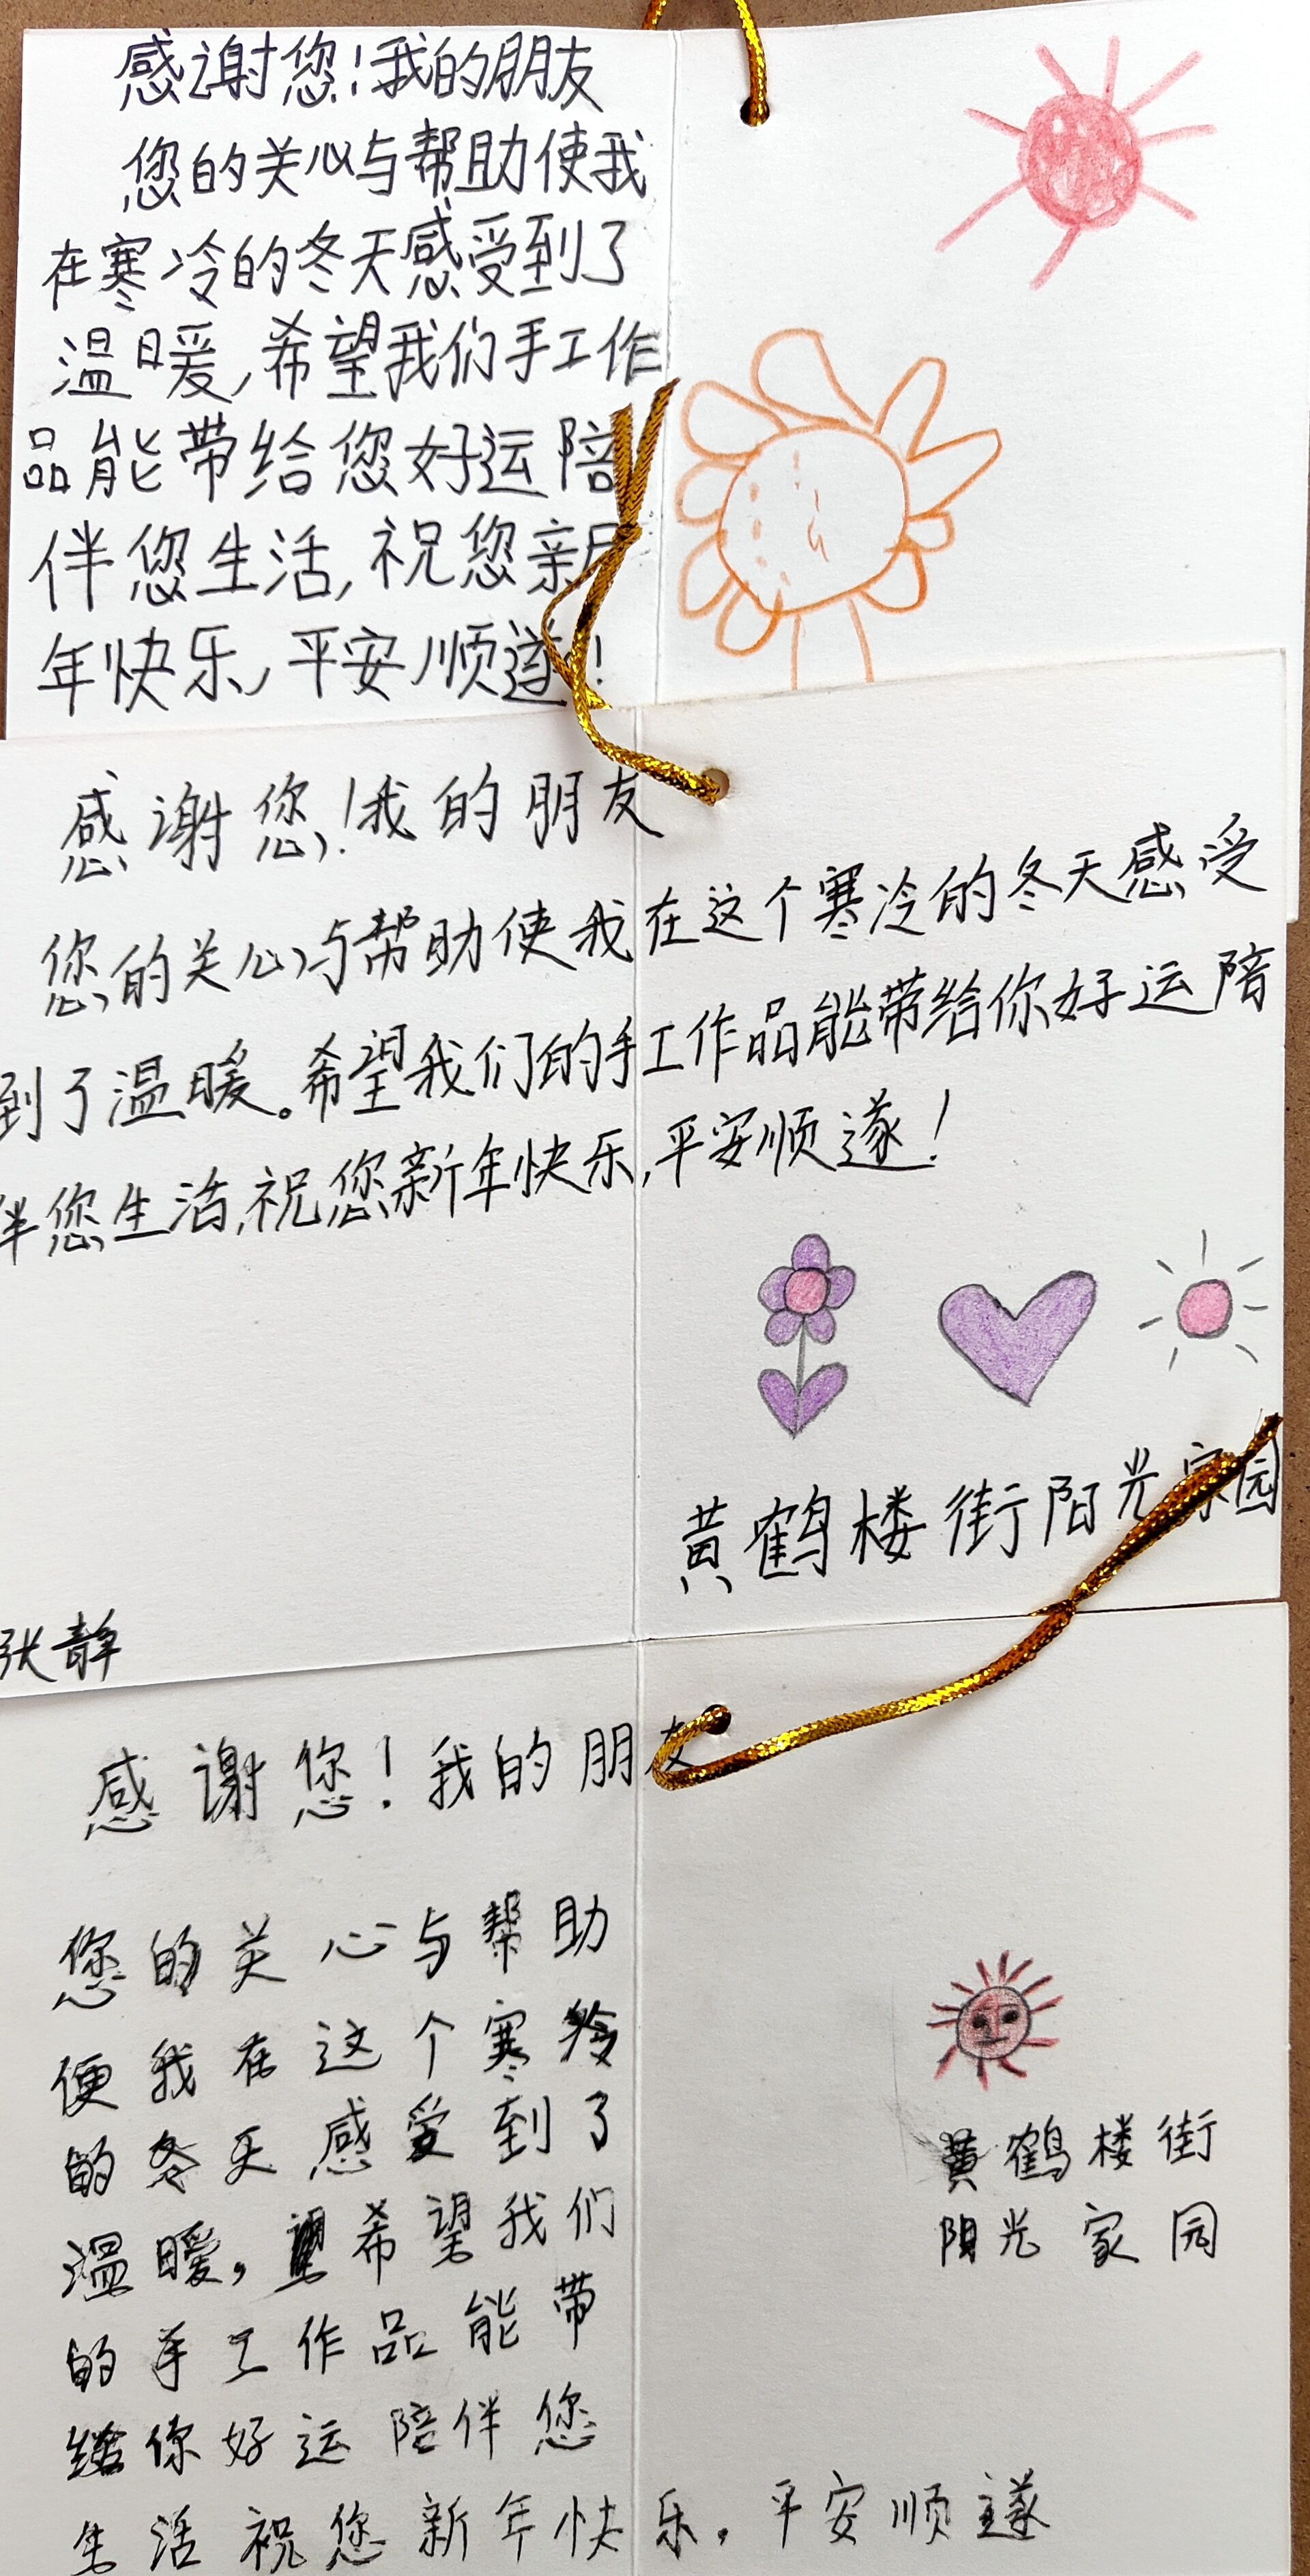 感谢您!我的朋友
您的关心与帮助使我
在寒冷的冬天感受到了
温暖,希望我们手工作
品能带给您好运陪
伴您生活,祝您新
年快乐,平安顺遂!
感谢您!我的朋友
您的关心与帮助使我在这个寒冷的冬天感受
到了温暖。希望我们的手工作品能带给你好运陪
伴您生活,祝您新年快乐,平安顺遂!
黄鹤楼街阳光家园
张静
感谢您!我的朋友
您的关心与帮助
便我在这个寒冷
的冬天感受到了
温暖,希望我们
的手工作品能带
给你好运陪伴您
生活祝您新年快乐,平安顺遂
黄鹤楼街
阳光家园